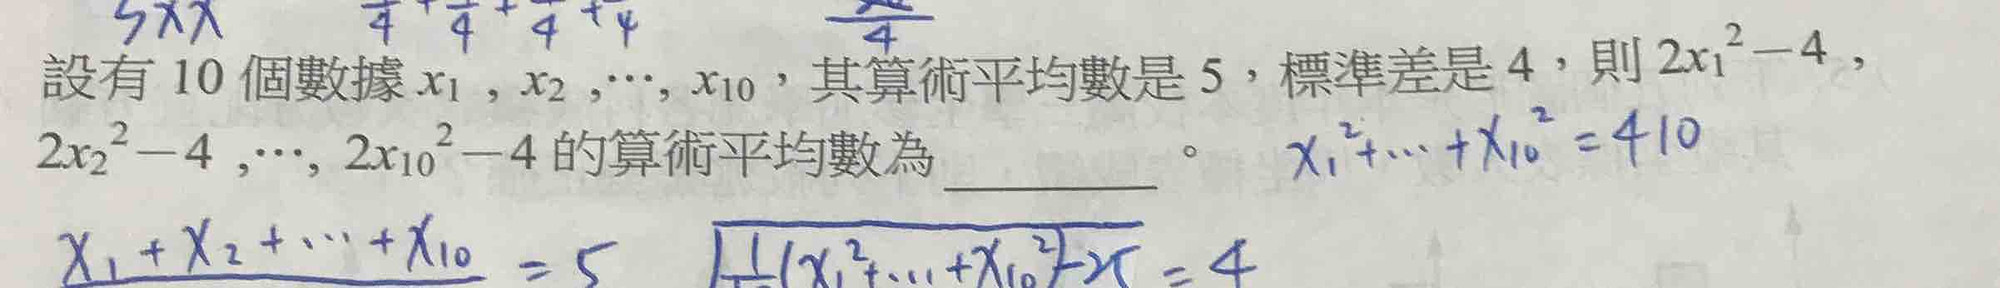 5xx  4 + 4 + 4 + 4  4
設有 10 個數據 x₁ , x₂ ,⋯, x₁₀,其算術平均數是 5,標準差是 4,則 2x₁²－4 ,
2x₂²－4 ,⋯, 2x₁₀²－4 的算術平均數為________。 x₁²+⋯+x₁₀²=410
x₁+x₂+⋯+x₁₀ = 5  √(1/10(x₁²+⋯+x₁₀²)-25) = 4